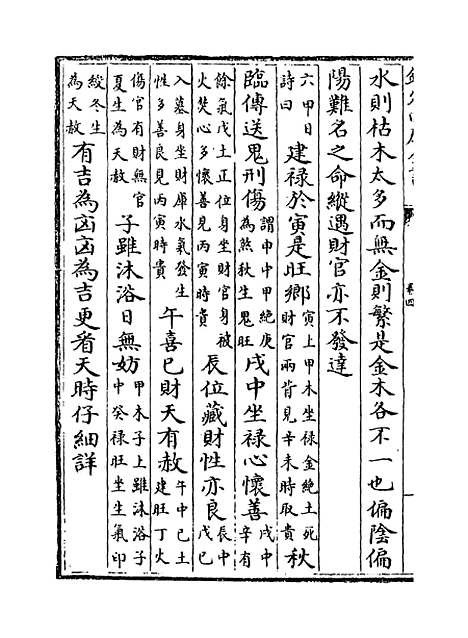 水則枯木太多而無金則繁是金木各不一也偏陰偏
陽難名之命縱遇財官亦不發達
六甲日
詩曰
建禄於寅是旺鄉
寅上甲木坐禄金絶土死
財官兩背見辛未時取貴
秋
臨傳送鬼刑傷
謂申中甲絶庚
為煞秋生鬼旺
戌中坐禄心懷善
戌中
辛有
餘氣戊土正位身坐財官身被
火焚心多懷善見丙寅時貴
辰位藏財性亦良
辰中
戊巳
入墓身坐財庫水氣發生
性多善良見丙寅時貴
午喜巳財天有赦
午中巳土
建旺丁火
傷官有財無官
夏生為天赦
子雖沐浴日無妨
甲木子上雖沐浴子
中癸禄旺坐生氣印
綬冬生
為天赦
有吉為凶凶為吉更看天時仔細詳